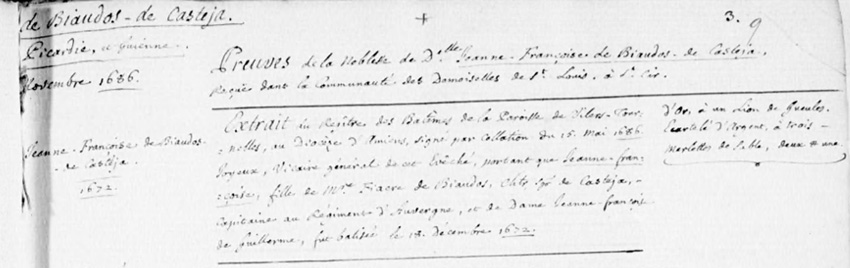 de Biaudos - de Casteja.
Picardie, et Guienne.
Novembre 1686.
3. 9
Preuves de la Noblesse de D.elle Jeanne - Françoise de Biaudos - de Casteja,
Reçue dans la Communauté des Demoiselles de S.t Louis, à S.t Cir.
Jeanne - Françoise de Biaudos -
- de Casteja.
1672.
Extrait du Regître des Batêmes de la Paroisse de Vilers-Tour-
-nelles, au Diocèze d'Amiens, signé par collation du 15. Mai 1686.
Joyeux, Vicaire général de cet Evêché, portant que Jeanne-fran-
-çoise, fille de M.re Fiacre de Biaudos, Ch.lr Sg.r de Casteja, -
Capitaine au Régiment d'Auvergne, et de Dame Jeanne-françoise
de Guillerme, fut batisée le 18. Décembre 1672.
D'Or, à un Lion de Gueules.
Ecartelé d'Argent, à trois -
Merlettes de Sable, deux & une.